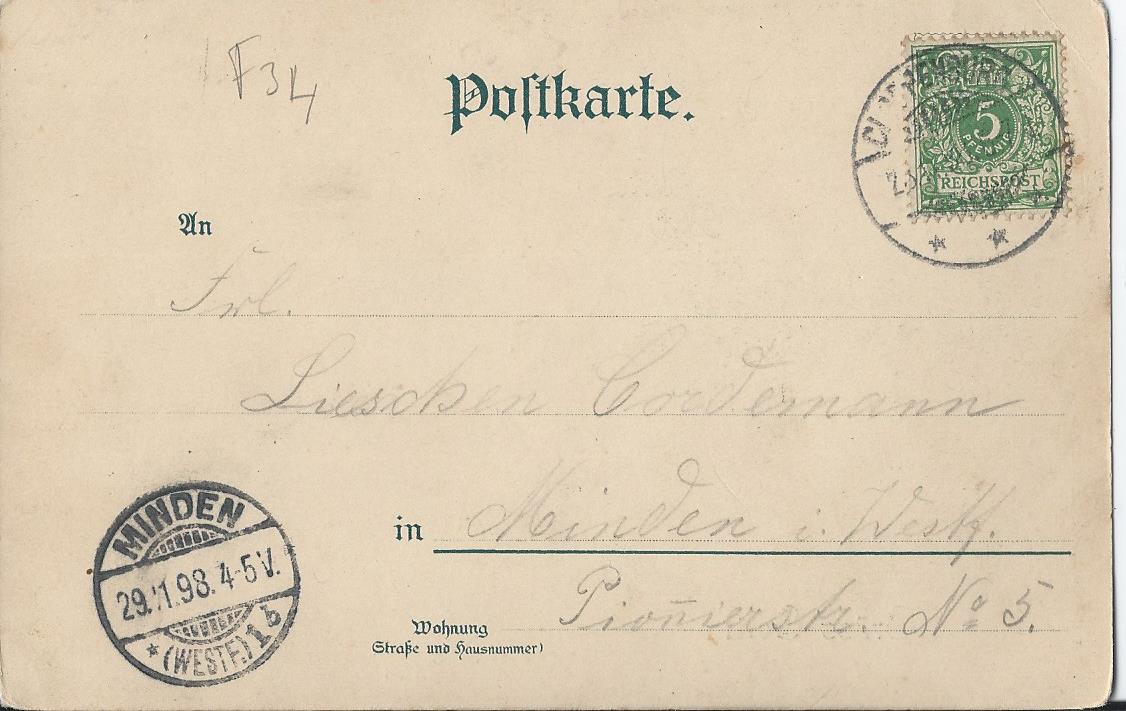 F34
Postkarte.
5
PFENNIG
REICHSPOST
An
Frl.
Lieschen Cordemann
in Minden i. Westf.
Pionierstr. No 5.
Wohnung
Straße und Hausnummer)
MINDEN
29.11.98. 4-5 V.
* (WESTF.) 1 b